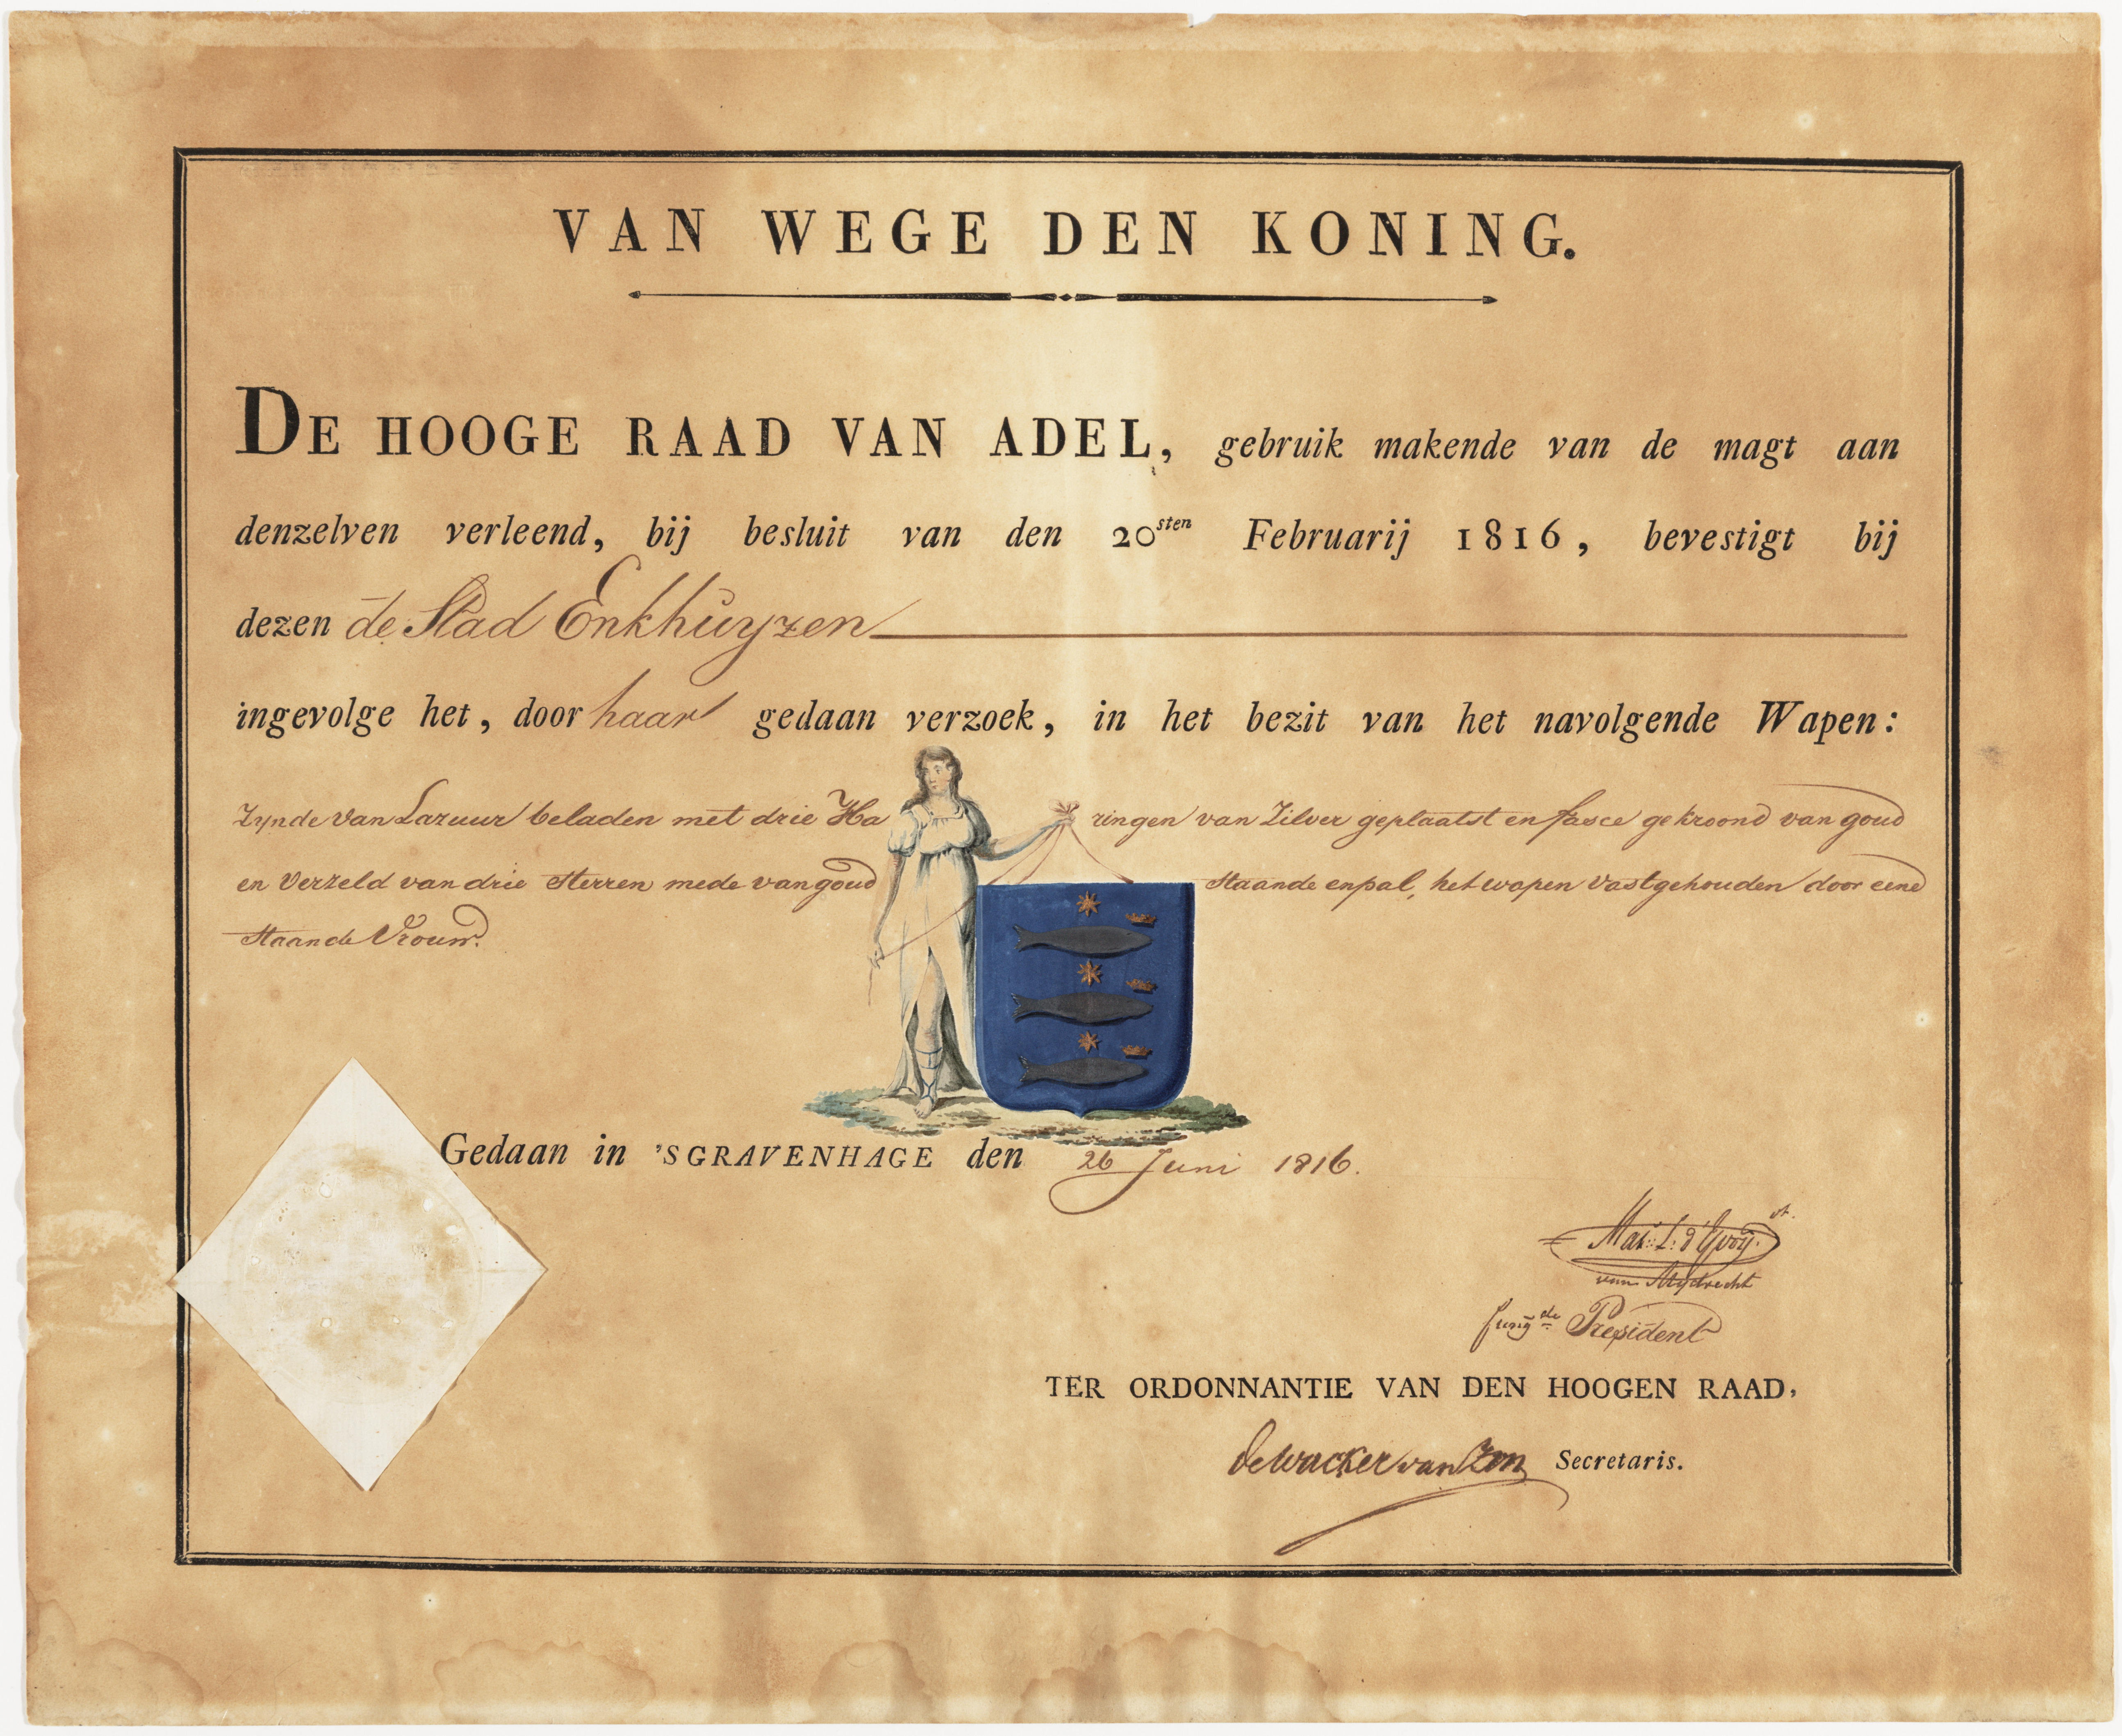 VAN WEGE DEN KONING.
DE HOOGE RAAD VAN ADEL, gebruik makende van de magt aan
denzelven verleend, bij besluit van den 20sten Februarij 1816, bevestigt bij
dezen de Stad Enkhuyzen
ingevolge het, door haar gedaan verzoek, in het bezit van het navolgende Wapen:
Zynde van Lazuur beladen met drie Haringen van Zilver geplaatst en fasce gekroond van goud
en verzeld van drie Sterren mede van goud staande en pal, het wapen vastgehouden door eene
staande Vrouw.
Gedaan in 'SGRAVENHAGE den 26 Juni 1816.
Mar: L: d'Yvoy
van Mydrecht
fungde President
TER ORDONNANTIE VAN DEN HOOGEN RAAD,
de Wacker van Zon Secretaris.